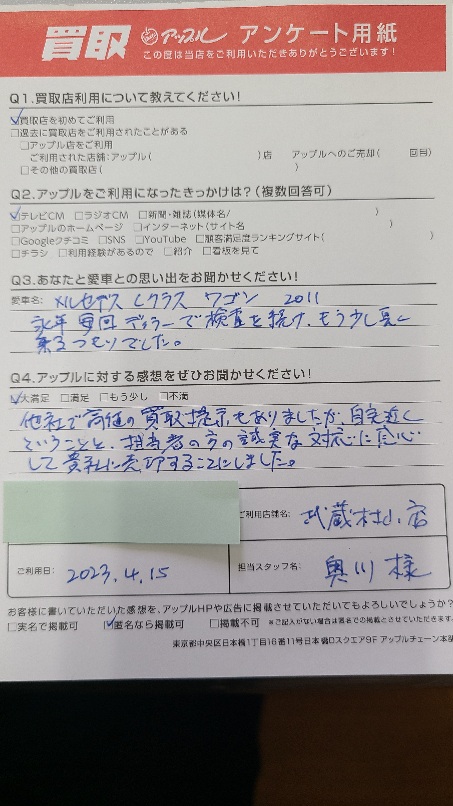 買取 アップル アンケート用紙
この度は当店をご利用いただきありがとうございます!
Q1.買取店利用について教えてください!
☑買取店を初めてご利用
□過去に買取店をご利用されたことがある
□アップル店をご利用
ご利用された店舗:アップル( )店 アップルへのご売却( 回目)
□その他の買取店( )
Q2.アップルをご利用になったきっかけは?(複数回答可)
☑テレビCM □ラジオCM □新聞・雑誌(媒体名/ )
□アップルのホームページ □インターネット(サイト名 )
□Googleクチコミ □SNS □YouTube □顧客満足度ランキングサイト( )
□チラシ □利用経験があるので □紹介 □看板を見て
Q3.あなたと愛車との思い出をお聞かせください!
愛車名: メルセデス Cクラス ワゴン 2011
永年 毎回 ディーラーで検査を続け、もう少し長く
乗るつもりでした。
Q4.アップルに対する感想をぜひお聞かせください!
☑大満足 □満足 □もう少し □不満
他社で高値の買取提示もありましたが、自宅近く
ということと、担当者の方の誠実な対応に感心
して貴社に売却することにしました。
ご利用店舗名: 武蔵村山店
ご利用日: 2023.4.15
担当スタッフ名: 奥川 様
お客様に書いていただいた感想を、アップルHPや広告に掲載させていただいてもよろしいでしょうか?
□実名で掲載可 ☑匿名なら掲載可 □掲載不可 ※ご記入がない場合は匿名での掲載とさせていただきます。
東京都中央区日本橋1丁目16番11号日本橋Dスクエア9F アップルチェーン本部